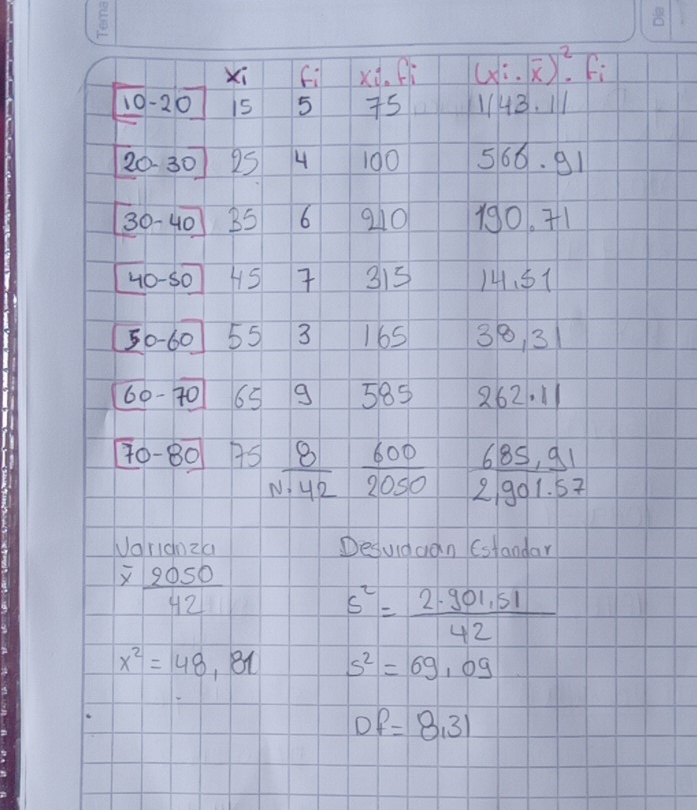 Tema
Dia
xi fi xi.fi (xi.x̄)².fi
10-20 15 5 75 1143.11
20-30 25 4 100 566.91
30-40 35 6 210 190.71
40-50 45 7 315 14.51
50-60 55 3 165 38,31
60-70 65 9 585 262.11
70-80 75 8 600 685,91
N.42 2050 2,901.57
Varianza Desviacian Estandar
x̄ 2050
42
s² = 2.901,51
42
x² = 48,81 s² = 69,09
Df = 8,31